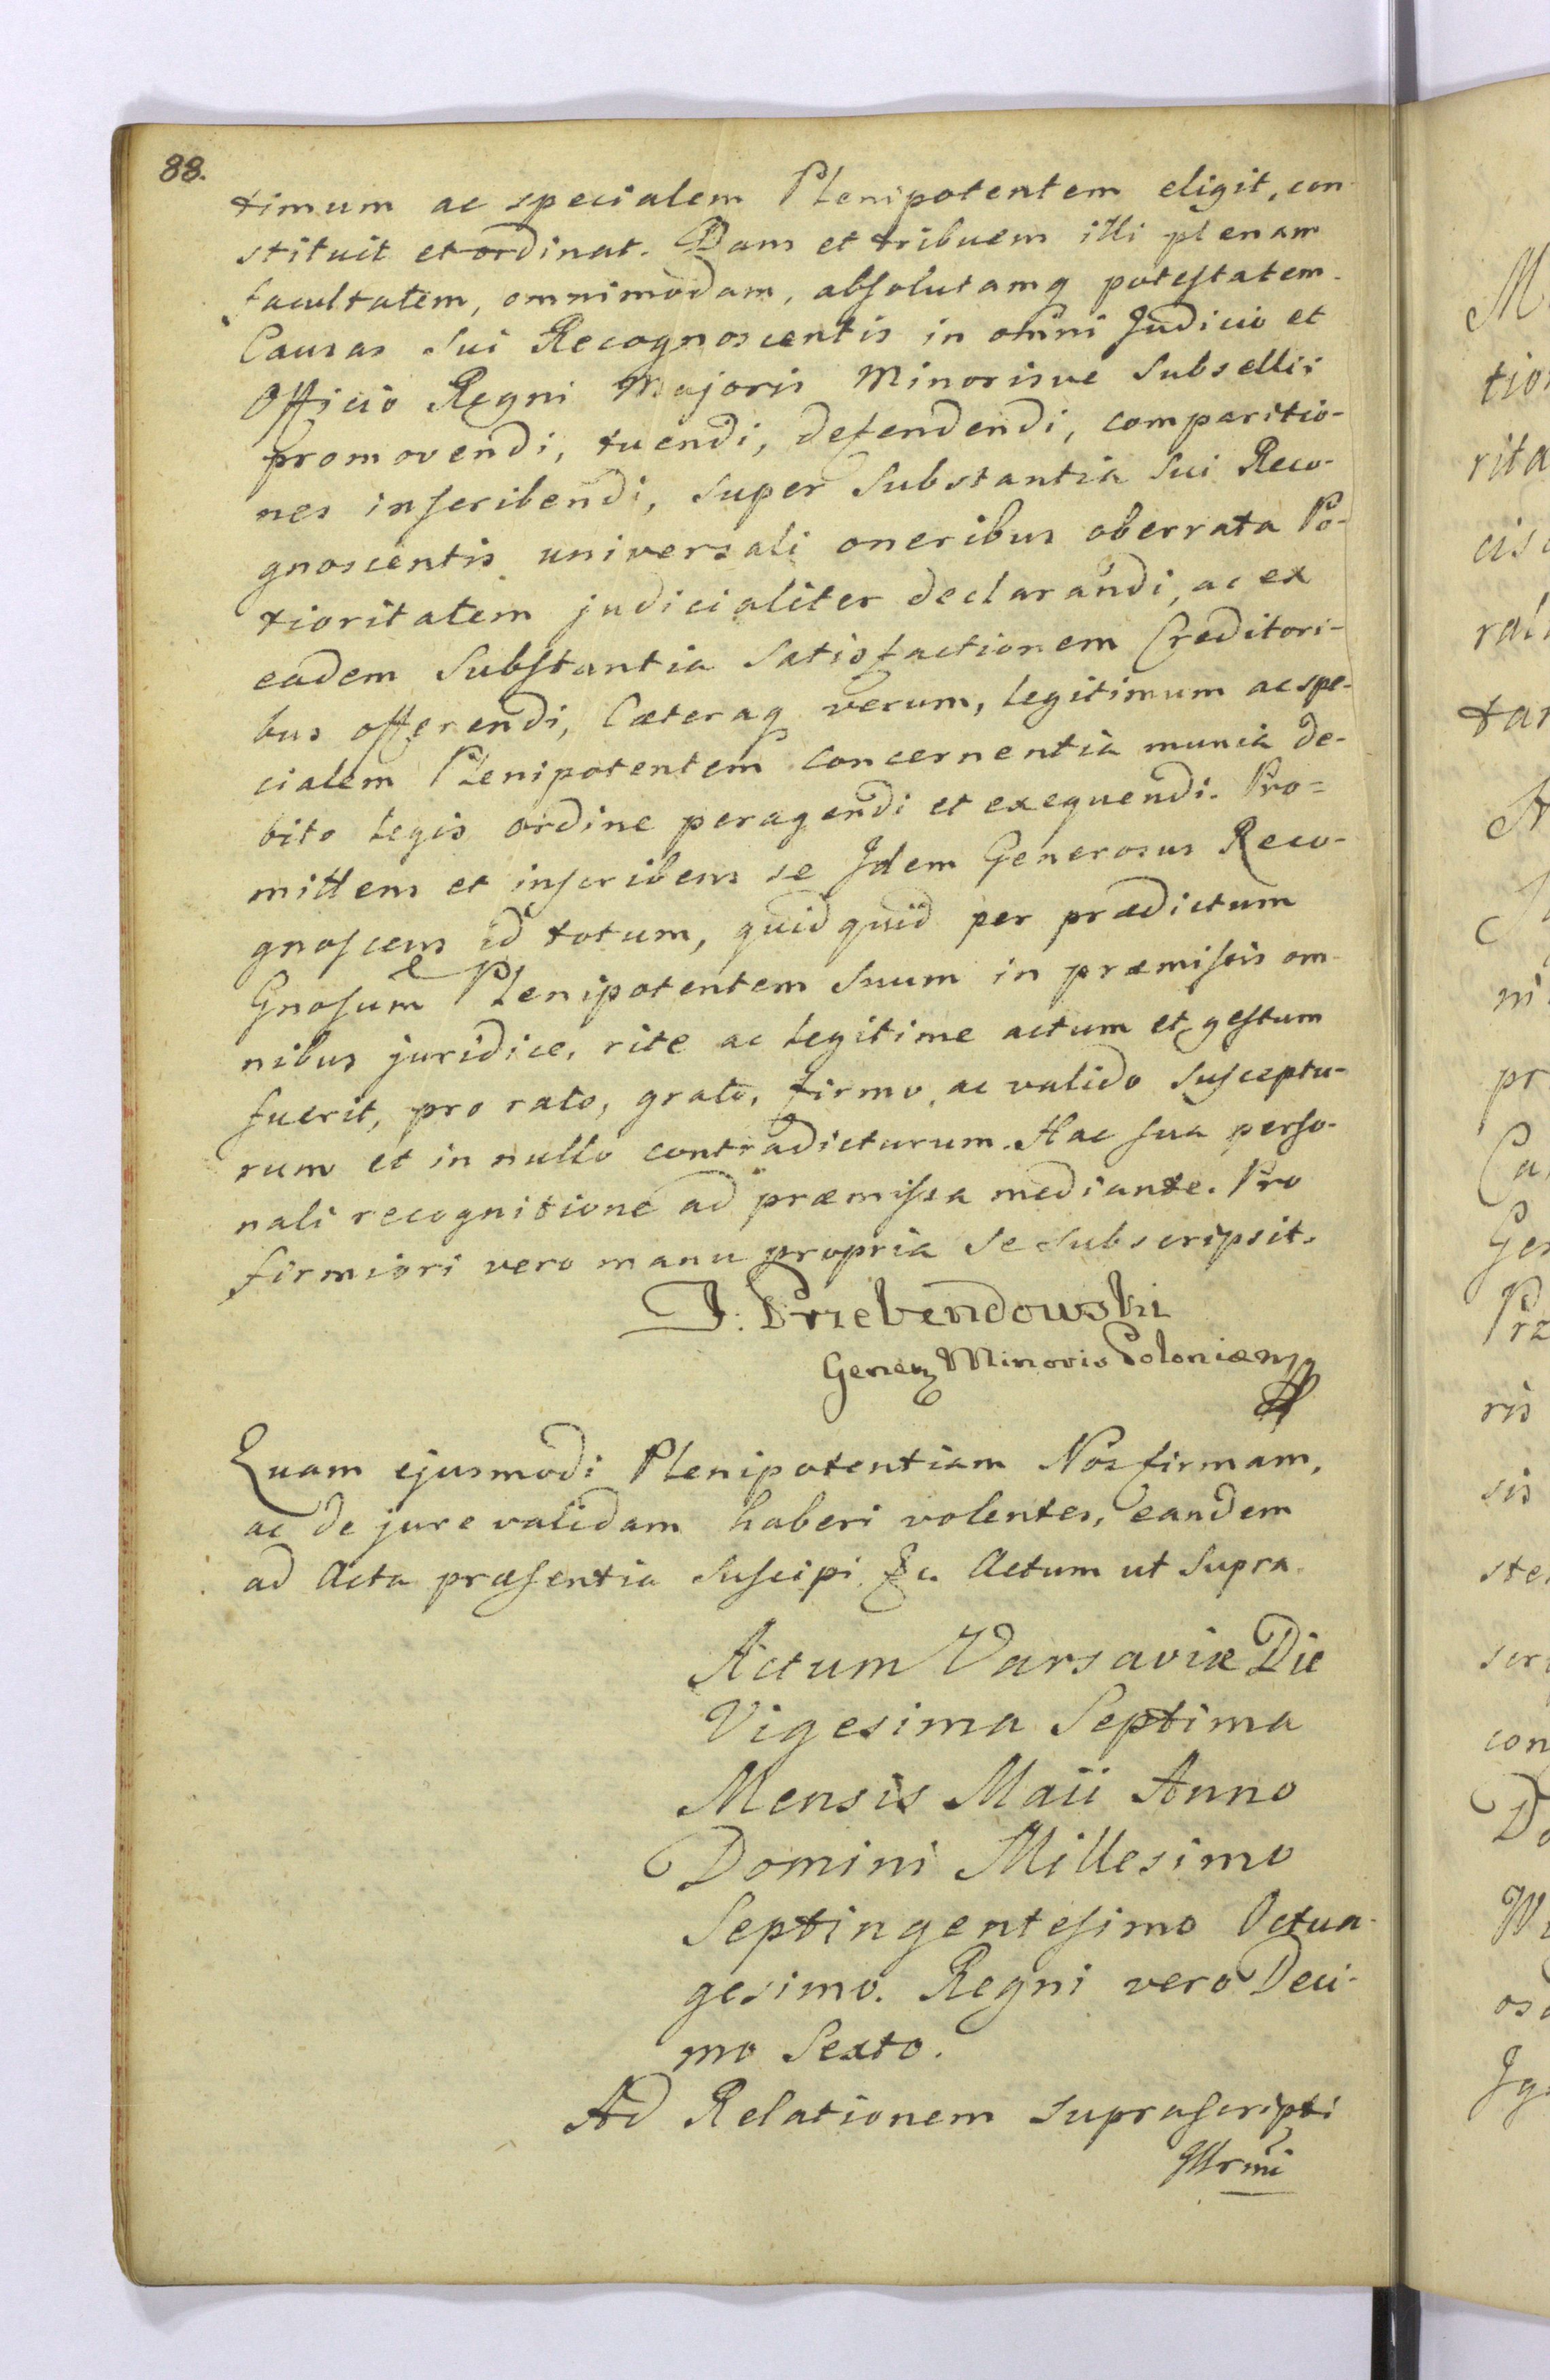 88.
timum ac specialem Plenipotentem eligit, con-
stituit et ordinat. Dans et tribuens illi plenam
facultatem, omnimodam, absolutamq potestatem
Causas Sui Recognoscentis in omni Judicio et
Officio Regni Majoris Minorisve Subsellii
promovendi, tuendi, defendendi, comparitio-
nes inscribendi, super Substantia Sui Reco-
gnoscentis universali oneribus oberrata Po-
tioritatem judicialiter declarandi, ac ex
eadem Substantia Satisfactionem Creditori-
bus offerendi, Cæteraq verum, legitimum ac spe-
cialem Plenipotentem concernentia munia de-
bito legis ordine peragendi et exequendi. Pro=
mittens et inscribens se Idem Generosus Reco-
gnoscens id totum, quidquid per prædictum
Gnosum Plenipotentem Suum in præmissis om-
nibus juridice, rite ac legitime actum et gestum
fuerit, pro rato, grato, firmo, ac valido Susceptu-
rum et in nullo contradicturum. Hac sua perso-
nali recognitione ad præmissa mediante. Pro
firmiori vero manu propria Se Subscripsit.
J. Przebendowski
Gener Minoris Poloniæ mp
Quam ejusmodi Plenipotentiam Nos firmam,
ac de jure validam haberi volentes, eandem
ad Acta præsentia Suscipi &c. Actum ut Supra.
Actum Varsaviæ Die
Vigesima Septima
Mensis Maii Anno
Domini Millesimo
Septingentesimo Octua-
gesimo. Regni vero Deci-
mo Sexto.
Ad Relationem Suprascripti
Illrmi
M
tion
rita
cis
rali
tan
A
ni
pr
Ca
Gen
Prz
ris
sis
ste
scri
con
Do
W
os
Jg